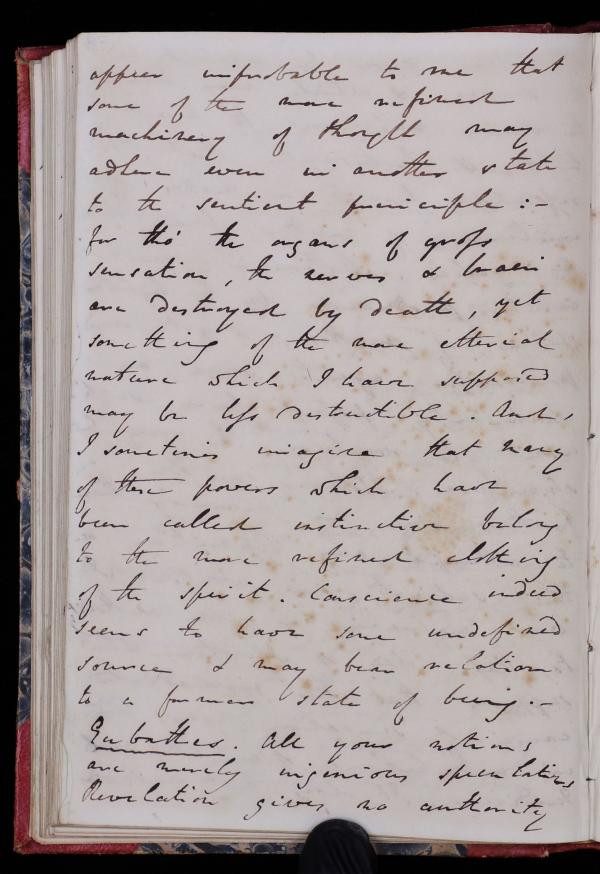 appear improbable to me that
some of the more refined
machinery of thought may
adhere even in another state
to the sentient principle :-
for tho' the organs of gross
sensation, the nerves & brain
are destroyed by death, yet
something of the more etherial
nature which I have supposed
may be less destructible. And,
I sometimes imagine that many
of these powers which have
been called instinctive belong
to the more refined clothing
of the spirit. Conscience indeed
seems to have some undefined
source & may bear relation
to a former state of being.-
Eubathes. All your notions
are merely ingenious speculations
Revelation gives no authority